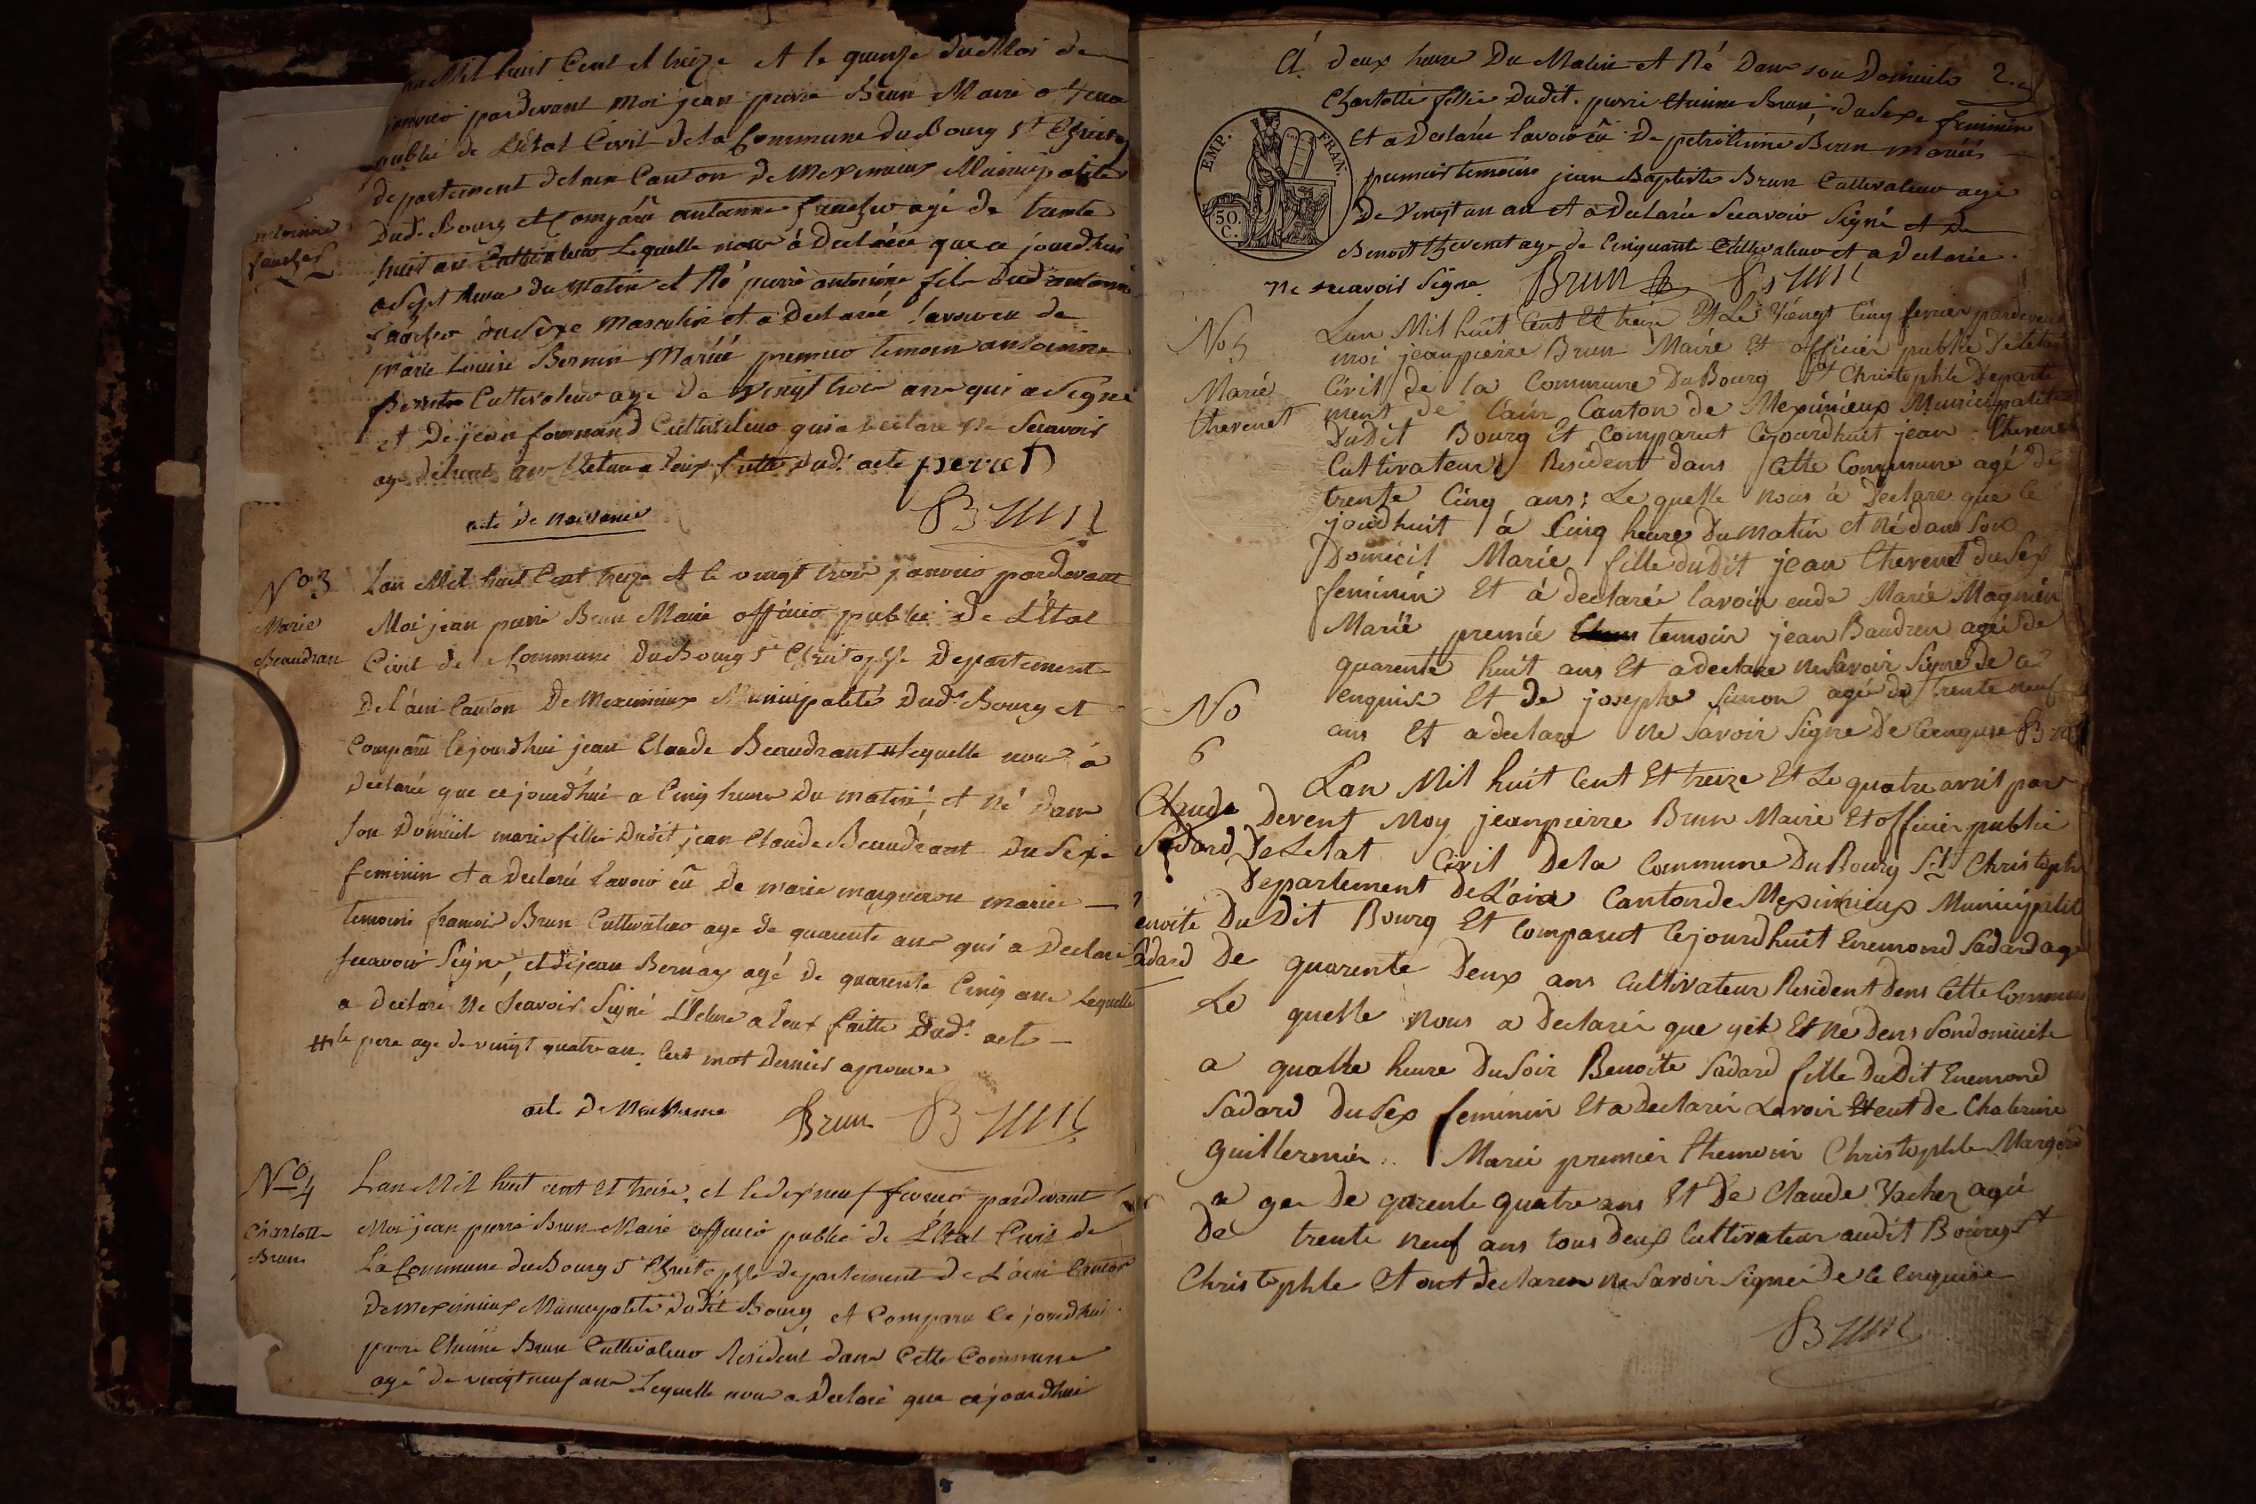 Mil huit Cent et treize et le quinze du Mois de
janvier pardevant moi jean pierre Brun Maire officier
public de L'Etat Civil de la Commune du Bourg St Christop
departement delain Canton de Meximieux Municipalite
Dud. Bourg et Comparu antoinne agé de trente
huit ans Cultivateur Lequelle nous à Declarée que a jourdhui
a Sept heure du matin et Né pierre antoinne fils Dud antoinne
du Sexe Masculin et a Declaré lavoir eu de
Marie Louise Mariée premier temoin antoinne
Perret Cultivateur age De vingt trois ans qui a Signé
et De jean Cultivateur qui a declare Ne Scavoir
dud. acte perret
Brun
acte de Naissance
No 3
Marie
Beaudran
Lan Mil huit Cent treize et le vingt trois janvier pardevant
Moi jean pierre Brun Maire officier public De L'Etat
Civil de la Commune Du Bourg St Christophe Departement
De L'ain Canton De Meximieux Municipalité Dud. Bourg et
Comparu Cejourdhui jean Claude Beaudrant # lequelle nous à
Declaré que ce jourdhui a Cinq heure Du matin, et Né Dans
son Domicile marie fille Dudit jean Claude Beaudrant Du Sexe
feminin et a Declaré Lavoir eû De marie marguiron mariée
temoins francois Brun Cultivateur age de quarente ans qui a Declaré
Scavoir Signé, et de jean Bernay agé de quarente Cinq ans Lequelle
a Declaré Ne Scavoir Signé Lecture a Leur faitte Dud. acte
# le pere age de vingt quatre an. Ces mot Dernier aprouve
acte De Naissance
Brun Brun
No 4
Charlotte
Brun
Lan Mil huit cent et treise, et le dix neuf fevrier pardevant
Moi jean pierre Brun Maire officier public de L'Etat Civil de
La Commune du Bourg St Christophle departement de L'ain Canton
De meximieux Municipalité Dudit Bourg et Comparu Ce jourdhui
pierre Etienne Brun Cultivateur Resident dans Cette Commune
agé de vingt neuf ans Lequelle nous a Declaré que cejourdhui
A deux heure Du Matin et Né Dans son Domicile 2.
Charlotte fille Dudit pierre Etienne Brun, du Sexe feminin
et a Declarée lavoir eû De Brun mariés
premier temoins jean Baptiste Brun Cultivateur age
De Vingt un an et a Declarée Scavoir Signé et De
Benoit thevenet age de Cinquante Cultivateur et a Declarée
ne scavoir Signe Brun Brun
EMP. FRAN.
50 C.
No 5
Marie
thevenet
Lan Mil huit Cent Et treize Et Le Viengt Cinq fevrier pardevent
moi jeanpierre Brun Maire Et officier public De letat
Civil de la Commune Du Bourg St Christophle Departe
ment de l'ain Canton de Meximieux Municipalité
Dudit Bourg Et Comparut Cejourdhuit jean thevenet
Cultivateur Resident dans Cette Commune agé de
trente Cinq ans; Le quelle nous à Declare que ce
jourdhuit à Cinq heures Du matin et né dans Son
Domicil Marie fille du Dit jean thevenet du Sex
feminin Et à declarée lavoir eude Marie Magnin
Marié premié temoin jean Baudren agé de
quarente huit ans Et a declare ne Savoir Signe de ce
enquise Et de josephe agé de trente neuf
ans Et a declare ne Savoir Signe De Ce enquise Brun
No
6
Claude
Sadard
Benoite
Sadard
Lan Mil huit Cent Et treize Et Le quatre avril par
Devent Moy jeanpierre Brun Maire Et officier public
De Letat Civil De la Commune Du Bourg St Christophe
Departement De L'ain Canton de Meximieux Municipalit
Du Dit Bourg Et Comparut Cejourdhuit Enemond Sadard age
De quarente Deux ans Cultivateur Resident Dens Cette Commune
Le quelle nous a Declarée que Et né Dens Sondomicile
a quattre heure Du Soir Benoite Sadard fille Du Dit Enemond
Sadard Du Sex feminin Et a Declarée Lavoir Eteut de Chaterine
guillermin Marié premier themoin Christophle
a ge De garente quatre ans Et De Claude Vacher agé
De trente neuf ans tous Deux Cultivateur audit Bourg St
Christophle Et ont declaren ne Savoir Signé De Ce Enquise
Brun